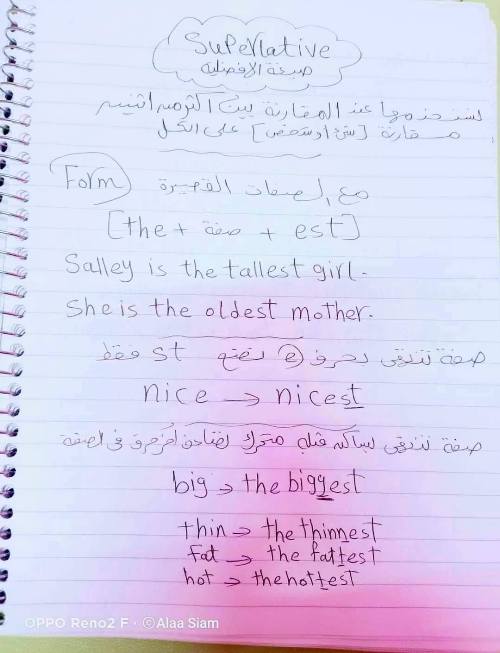 Superlative
صيغة الافضلية
نستخدمها عند المقارنة بين اكثر من اثنين
مقارنة [شئ او شخص] على الكل
Form مع الصفات القصيرة
[the + صفة + est]
Salley is the tallest girl.
She is the oldest mother.
صفة تنتهى بحرف e نضع st فقط
nice → nicest
صفة تنتهى بساكن قبله متحرك نضاعف اخر حرف فى الصفة
big → the biggest
thin → the thinnest
fat → the fattest
hot → the hottest
OPPO Reno2 F · ©Alaa Siam